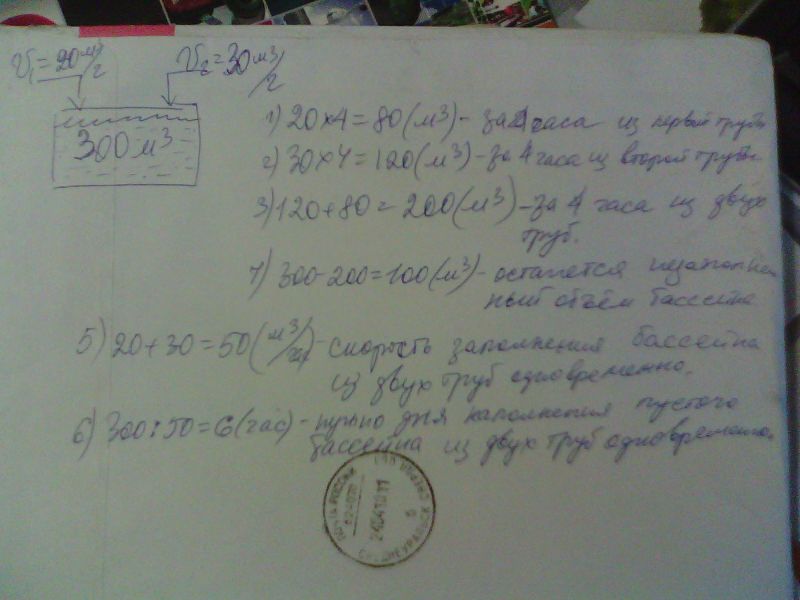 V₁=20 м³/г
V₂=30 м³/г
300 м³
1) 20×4=80(м³)- за 4 часа из первой трубы
2) 30×4=120(м³)-за 4 часа из второй трубы
3) 120+80=200(м³)-за 4 часа из двух
труб.
4) 300-200=100(м³)- останется незаполнен
ный объём бассейна
5) 20+30=50(м³/час)- скорость заполнения бассейна
из двух труб одновременно.
6) 300:50=6(час)-нужно для наполнения пустого
бассейна из двух труб одновременно.
ПОЧТА РОССИИ
СРЕДНЕУРАЛЬСК